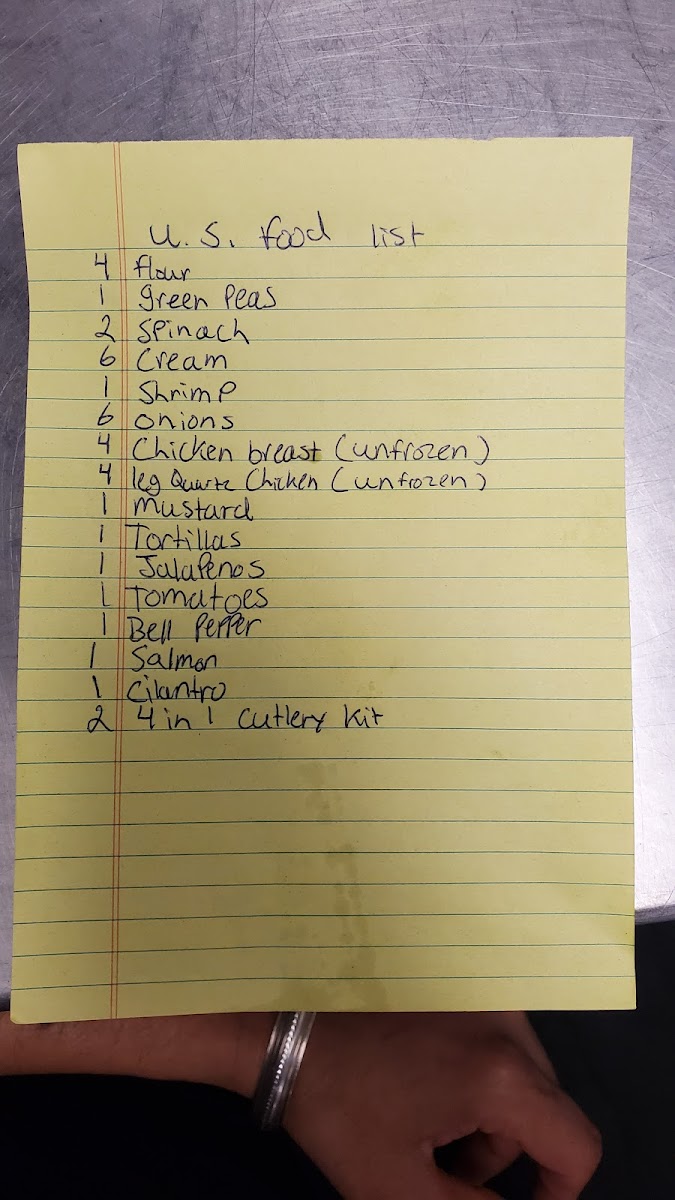 U. S. food list
4 flour
1 green Peas
2 Spinach
6 Cream
1 Shrimp
6 onions
4 Chicken breast (unfrozen)
4 leg Quarte Chicken (unfrozen)
1 Mustard
1 Tortillas
1 Jalapenos
1 Tomatoes
1 Bell Pepper
1 Salmon
1 Cilantro
2 4 in 1 Cutlery Kit